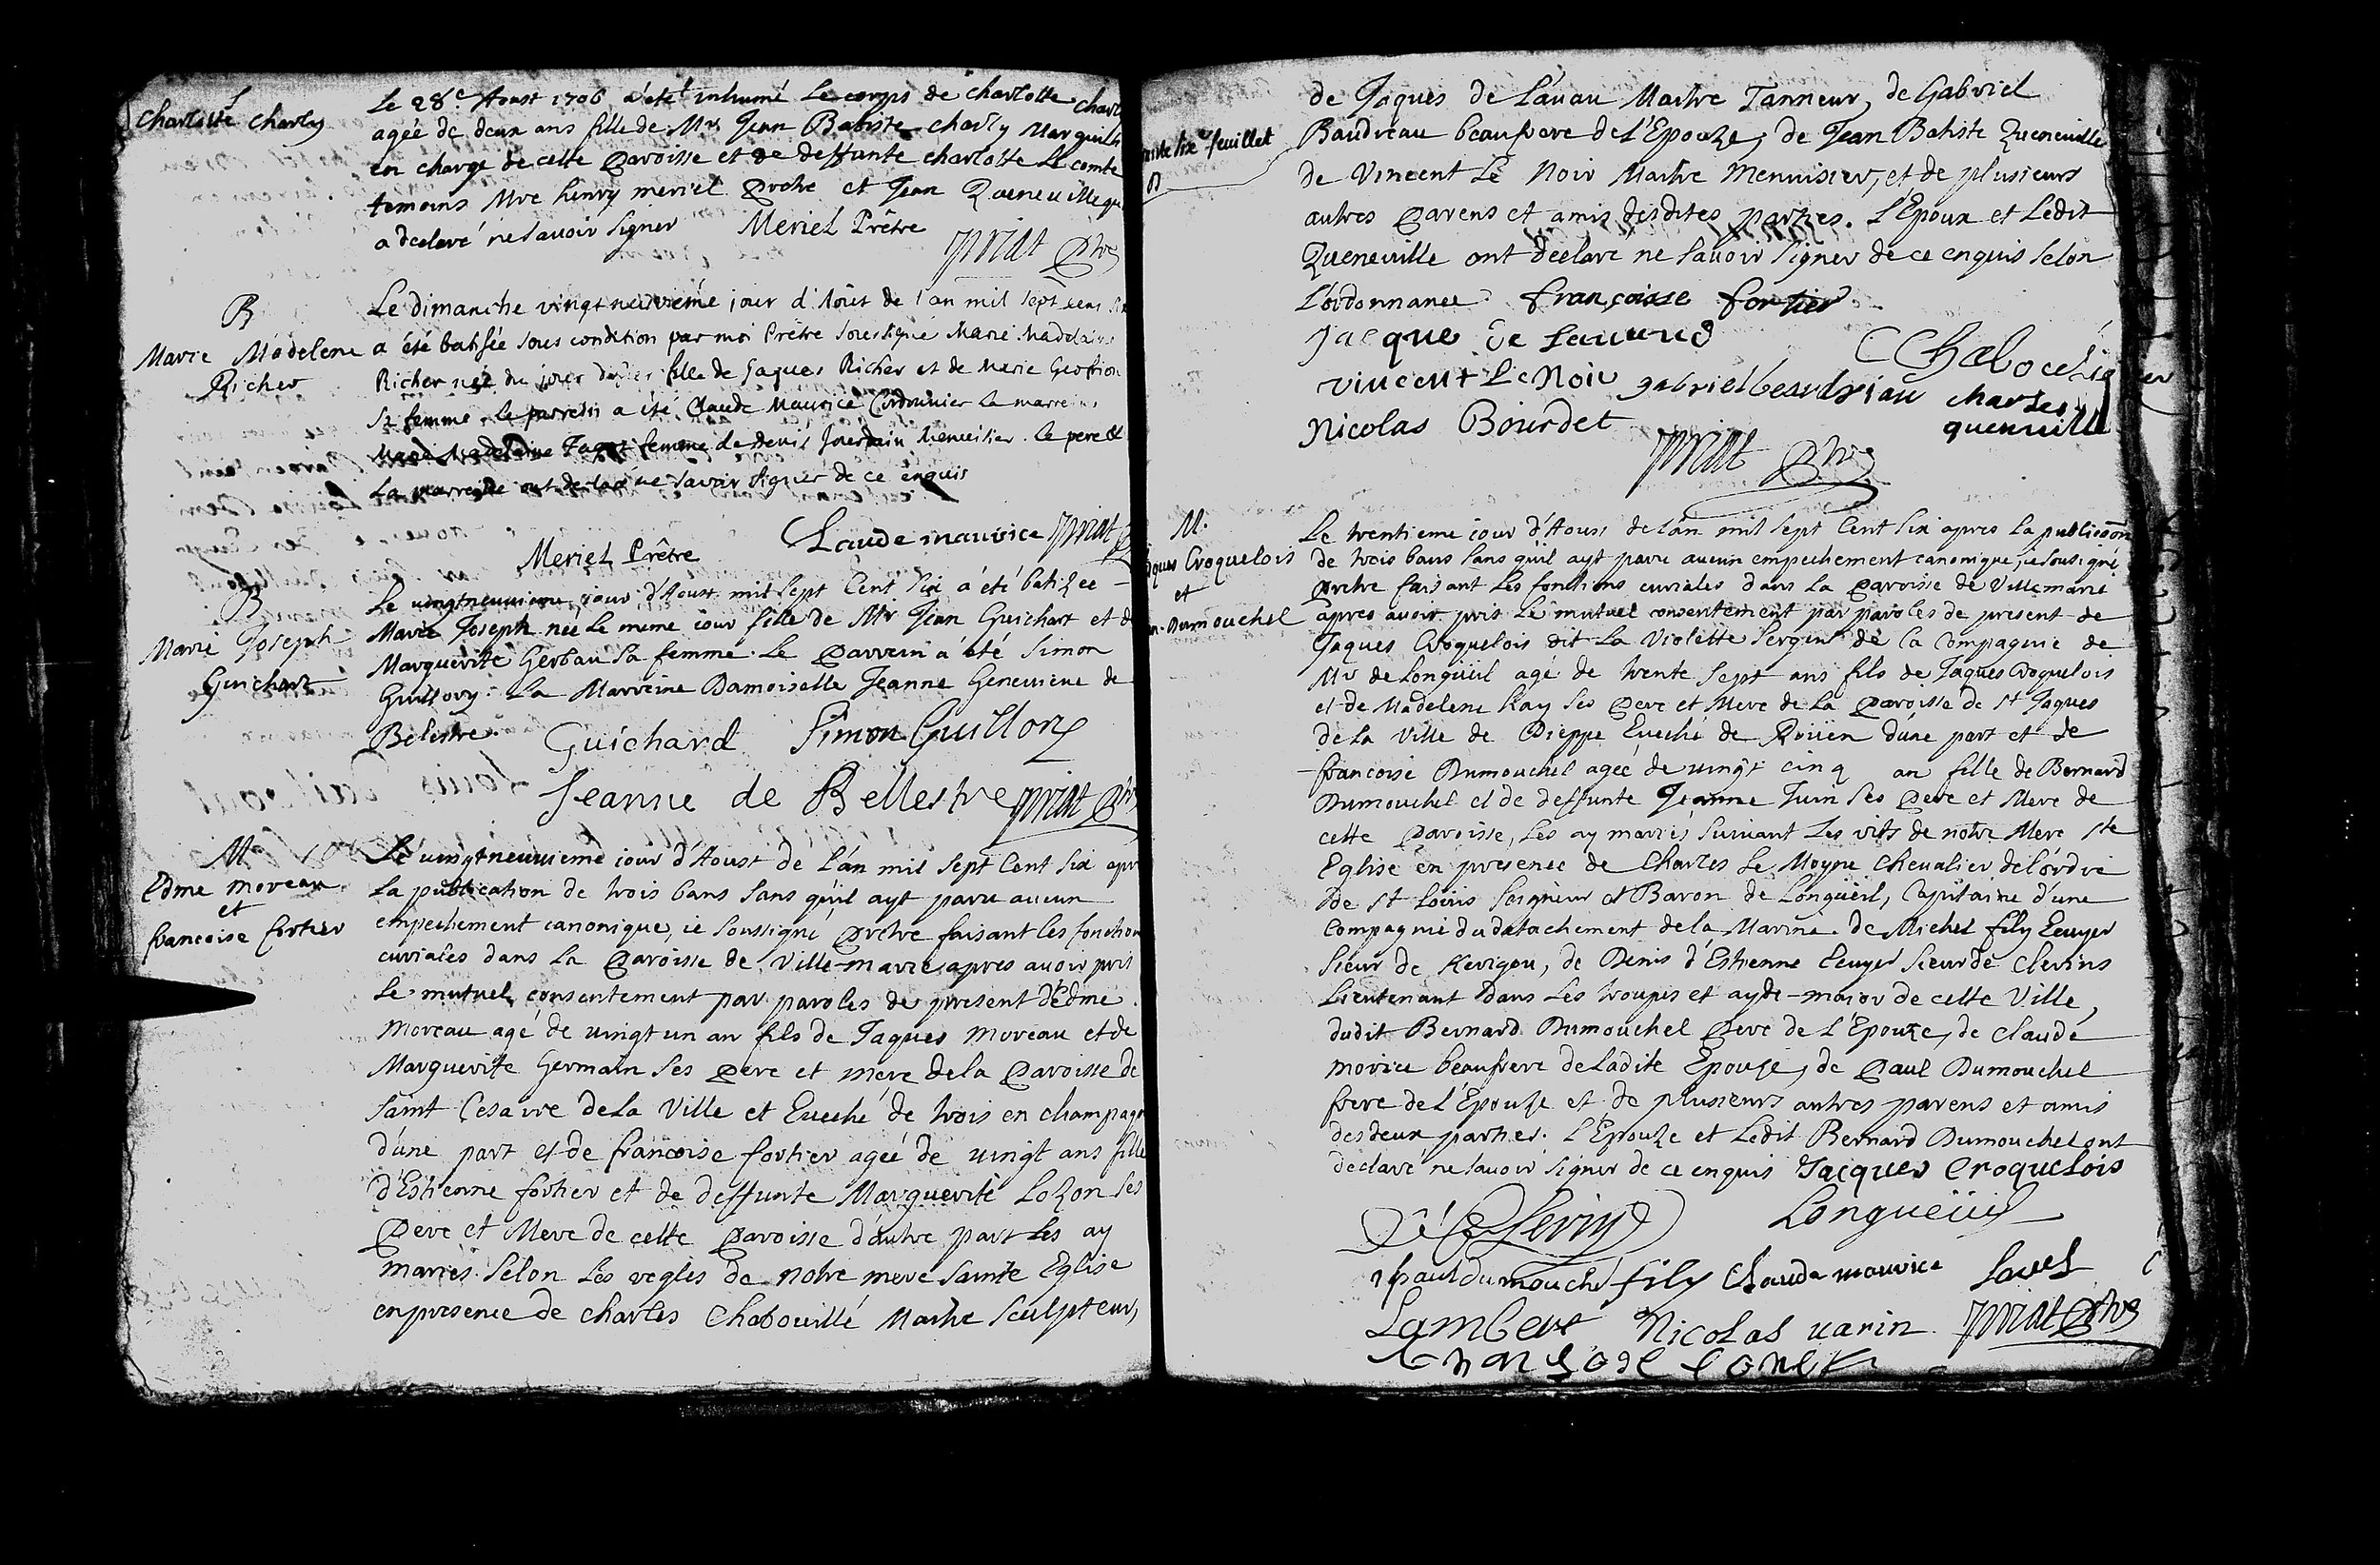 S
Charlotte Charly
Le 28e. Aoust 1706 a été inhumé Le corps de charlotte charl
agée de deux ans fille de Mr. Jean Batiste charly Marguill
en charge de cette Paroisse et de deffunte charlotte Le comte
temoins Mre henry meriel Prêtre et Jean Queneville qu
a declaré ne savoir signer Meriel Prêtre
priat Ptre
B
Marie Madelene
Richer
Le dimanche vingt neuvieme jour d'Aout de l'an mil sept cens
a été batisée sous condition par moi Prêtre soussigné Marie Madelaine
Richer née du jour fille de Jaques Richer et de Marie Geoffrion
sa femme. le parrein a été Claude Maurice Cordonnier La marreine
Marie Madelaine Fagot femme de Denis Jourdain Menuisier. le pere &
La marreine ont declaré ne savoir signer de ce enquis
Claude maurice priat
Meriel Prêtre
B
Marie Joseph
Guichart
Le vingtneuvieme jour d'Aoust mil sept Cent six a été batizee
Marie Joseph née Le meme iour fille de Mr Jean Guichart et d
Marguerite Gerbau sa femme. Le Parrein a été Simon
Guillory. La Marreine Damoiselle Jeanne Genevieve de
Belestre. Guichard Simon Guillory
Jeanne de Bellestre priat Ptre
M
Edme moreau
et
francoise fortier
Le vingtneuvieme iour d'Aoust de L'an mil sept Cent six apr
La publication de trois bans sans qu'il ayt paru aucun
empechement canonique, ie soussigné Prêtre faisant les fonction
curiales dans La Paroisse de Ville-marie, apres avoir pris
Le mutuel consentement par paroles de present d'Edme
moreau agé de vingt un an fils de Jaques moreau et de
Marguerite Germain ses Pere et mere dela Paroisse de
Saint Cesaire de La Ville et Eveché de trois en champagn
d'une part et de francoise fortier agée de vingt ans fille
d'Estienne fortier et de deffunte Marguerite Lozon ses
Pere et Mere de cette Paroisse d'autre part Les ay
mariés selon Les regles de notre mere Sainte Eglise
en presence de charles Chabouillé Maitre Sculpteur,
feuillet
de Jaques de Lavau Maitre Tanneur, de Gabriel
Baudreau beaufrere de L'Epouze, de Jean Batiste Queneuille
de Vincent Le Noir Maitre Mennisier, et de plusieurs
autres Parens et amis desdites parties. L'Epoux et Ledit
Queneuille ont declaré ne savoir signer de ce enquis selon
L'ordonnance. françoise fortier
Jacque de Lauund
CChaboulié
vincent Le Noir gabriel beaudriau charles
quenuill
Nicolas Bourdet
priat Ptre
M.
ques Croquelois
et
Dumouchel
Le trentieme iour d'Aoust de L'an mil sept Cent six apres La publicaon
de trois bans sans qu'il ayt paru aucun empechement canonique, ie sousigné
Prêtre faisant Les fonctions curiales dans La Paroisse de Villemarie
apres avoir pris Le mutuel consentement par paroles de present de
Jaques Croquelois dit La Violette sergent de La Compagnie de
Mr de Longüüil agé de trente sept ans fils de Jaques Croquelois
et de Madelene Kay ses Pere et Mere de La Paroisse de St Jaques
de La ville de Dieppe Eveché de Roüen d'une part et de
francoise Dumouchel agée de vingt cinq an fille de Bernard
Dumouchel et de deffunte Jeanne Juin ses Pere et Mere de
cette Paroisse, Les ay mariés suivant Les rits de notre Mere Ste
Eglise en presence de Charles Le Moyne Chevalier de L'ordre
de St Loüis Seigneur et Baron de Longüeil, Capitaine d'une
Compagnie du detachement de La Marine de Michel fily Ecuyer
Sieur de Kerigou, de Denis d'Estienne Ecuyer sieur de Clerins
Lieutenant dans Les troupes et ayde-major de cette Ville,
dudit Bernard Dumouchel Pere de L'Epouze, de Claude
morice beaufrere de Ladite Epouze, de Paul Dumouchel
frere de L'Epouze et de plusieurs autres parens et amis
des deux parties. L'Epouze et Ledit Bernard Dumouchel ont
declaré ne savoir signer de ce enquis Jacques Croquelois
De Clerin Longueüil
paul dumouche fily Claude maurice
Lambert Nicolas varin priat Ptre